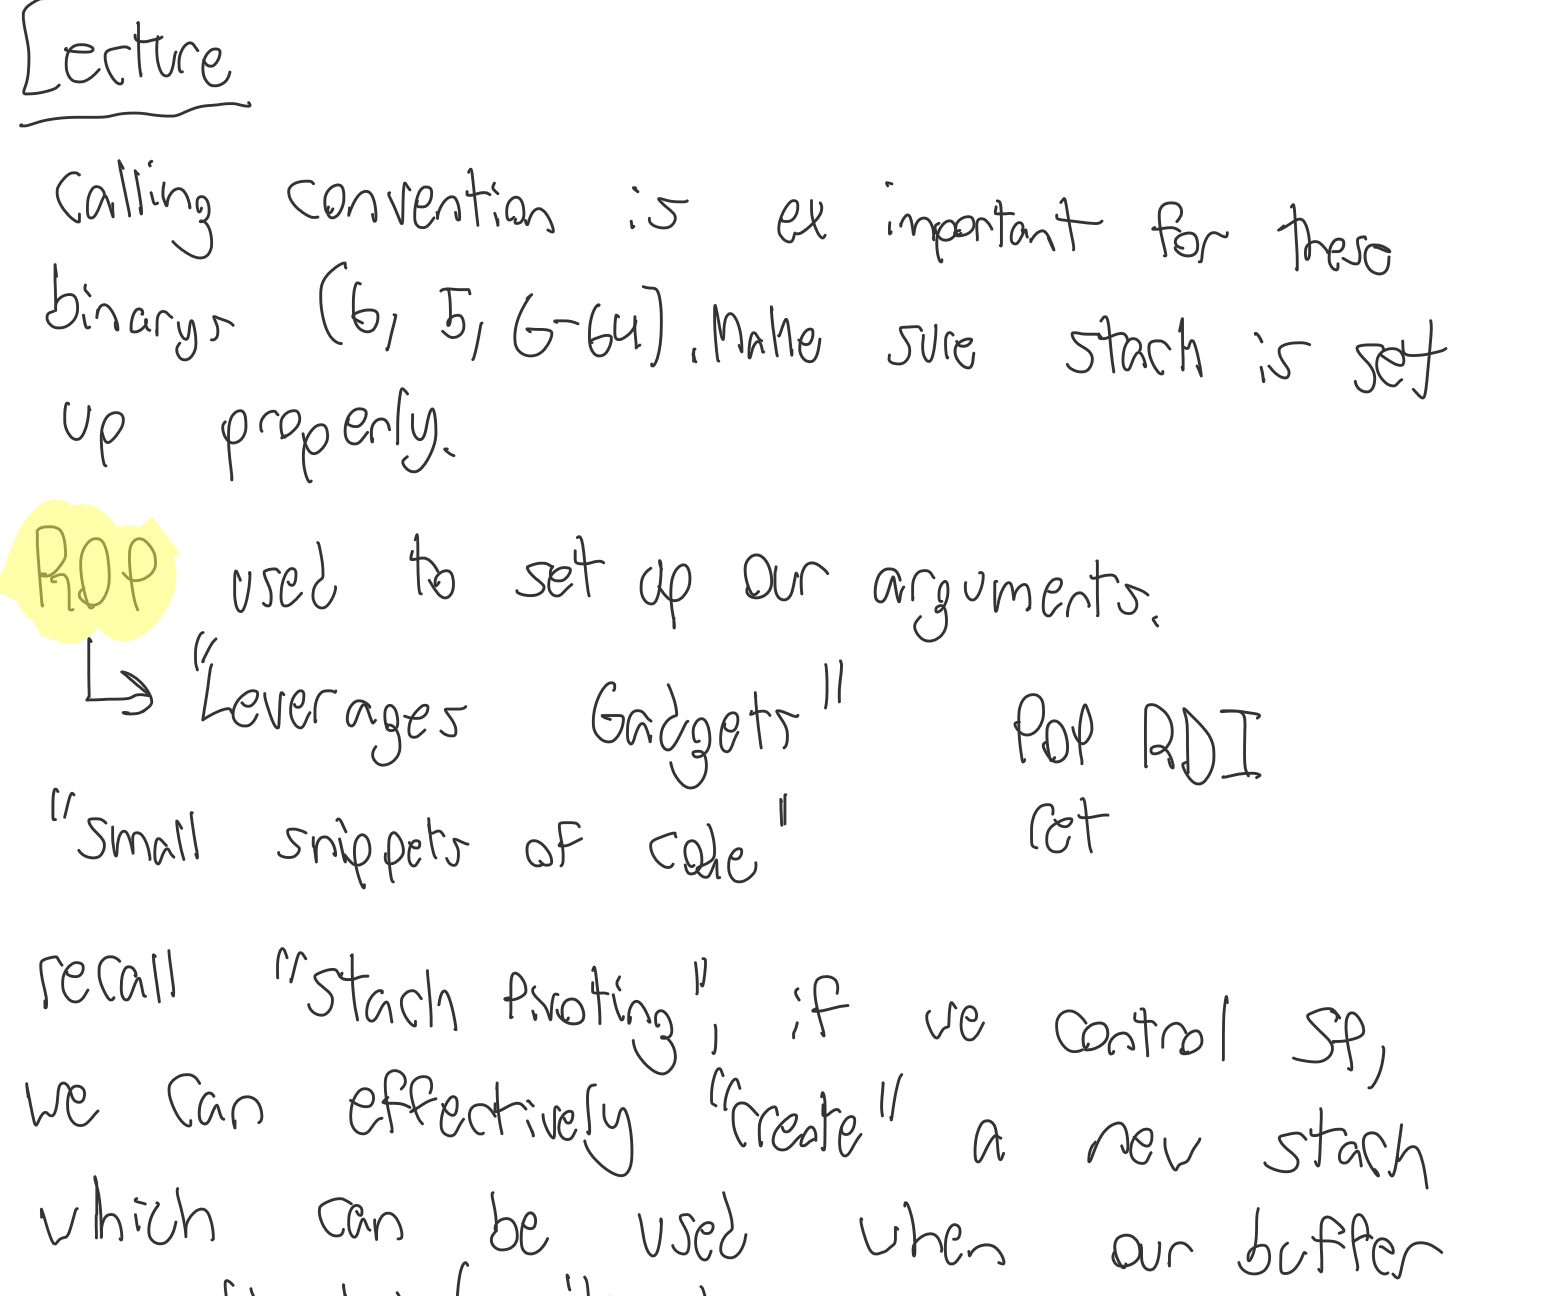 Lecture
Calling convention is ex important for these
binarys (6, 5, 6-64). Make sure stack is set
up properly.
ROP used to set up our arguments.
"Leverages Gadgets" POP RDI
"small snippets of code" ret
recall "Stack Pivoting", if we control SP,
we can effectively "create" a new stack
which can be used when our buffer